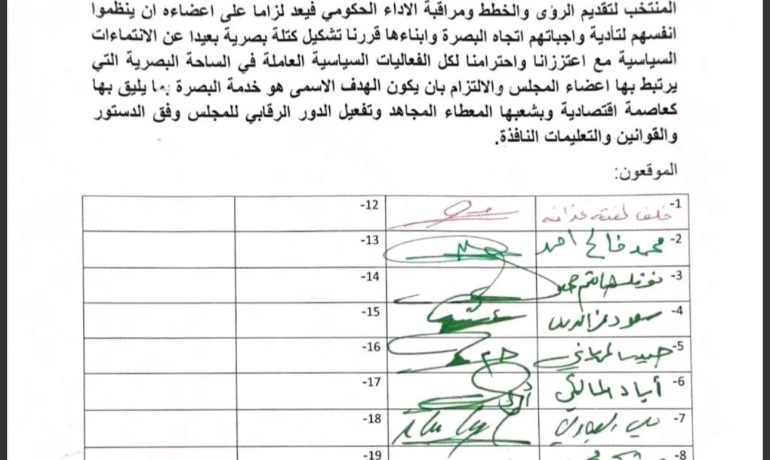 المنتخب لتقديم الرؤى والخطط ومراقبة الاداء الحكومي فيعد لزاما على اعضاءه ان ينظموا
انفسهم لتأدية واجباتهم اتجاه البصرة وابناءها قررنا تشكيل كتلة بصرية بعيدا عن الانتماءات
السياسية مع اعتزازنا واحترامنا لكل الفعاليات السياسية العاملة في الساحة البصرية التي
يرتبط بها اعضاء المجلس والالتزام بان يكون الهدف الاسمى هو خدمة البصرة بما يليق بها
كعاصمة اقتصادية وبشعبها المعطاء المجاهد وتفعيل الدور الرقابي للمجلس وفق الدستور
والقوانين والتعليمات النافذة.
الموقعون:
1- خلف 12-
2- محمد فالح احمد 13-
3- 14-
4- سعود عز الدين 15-
5- 16-
6- أياد المالكي 17-
7- 18-
8- 19-